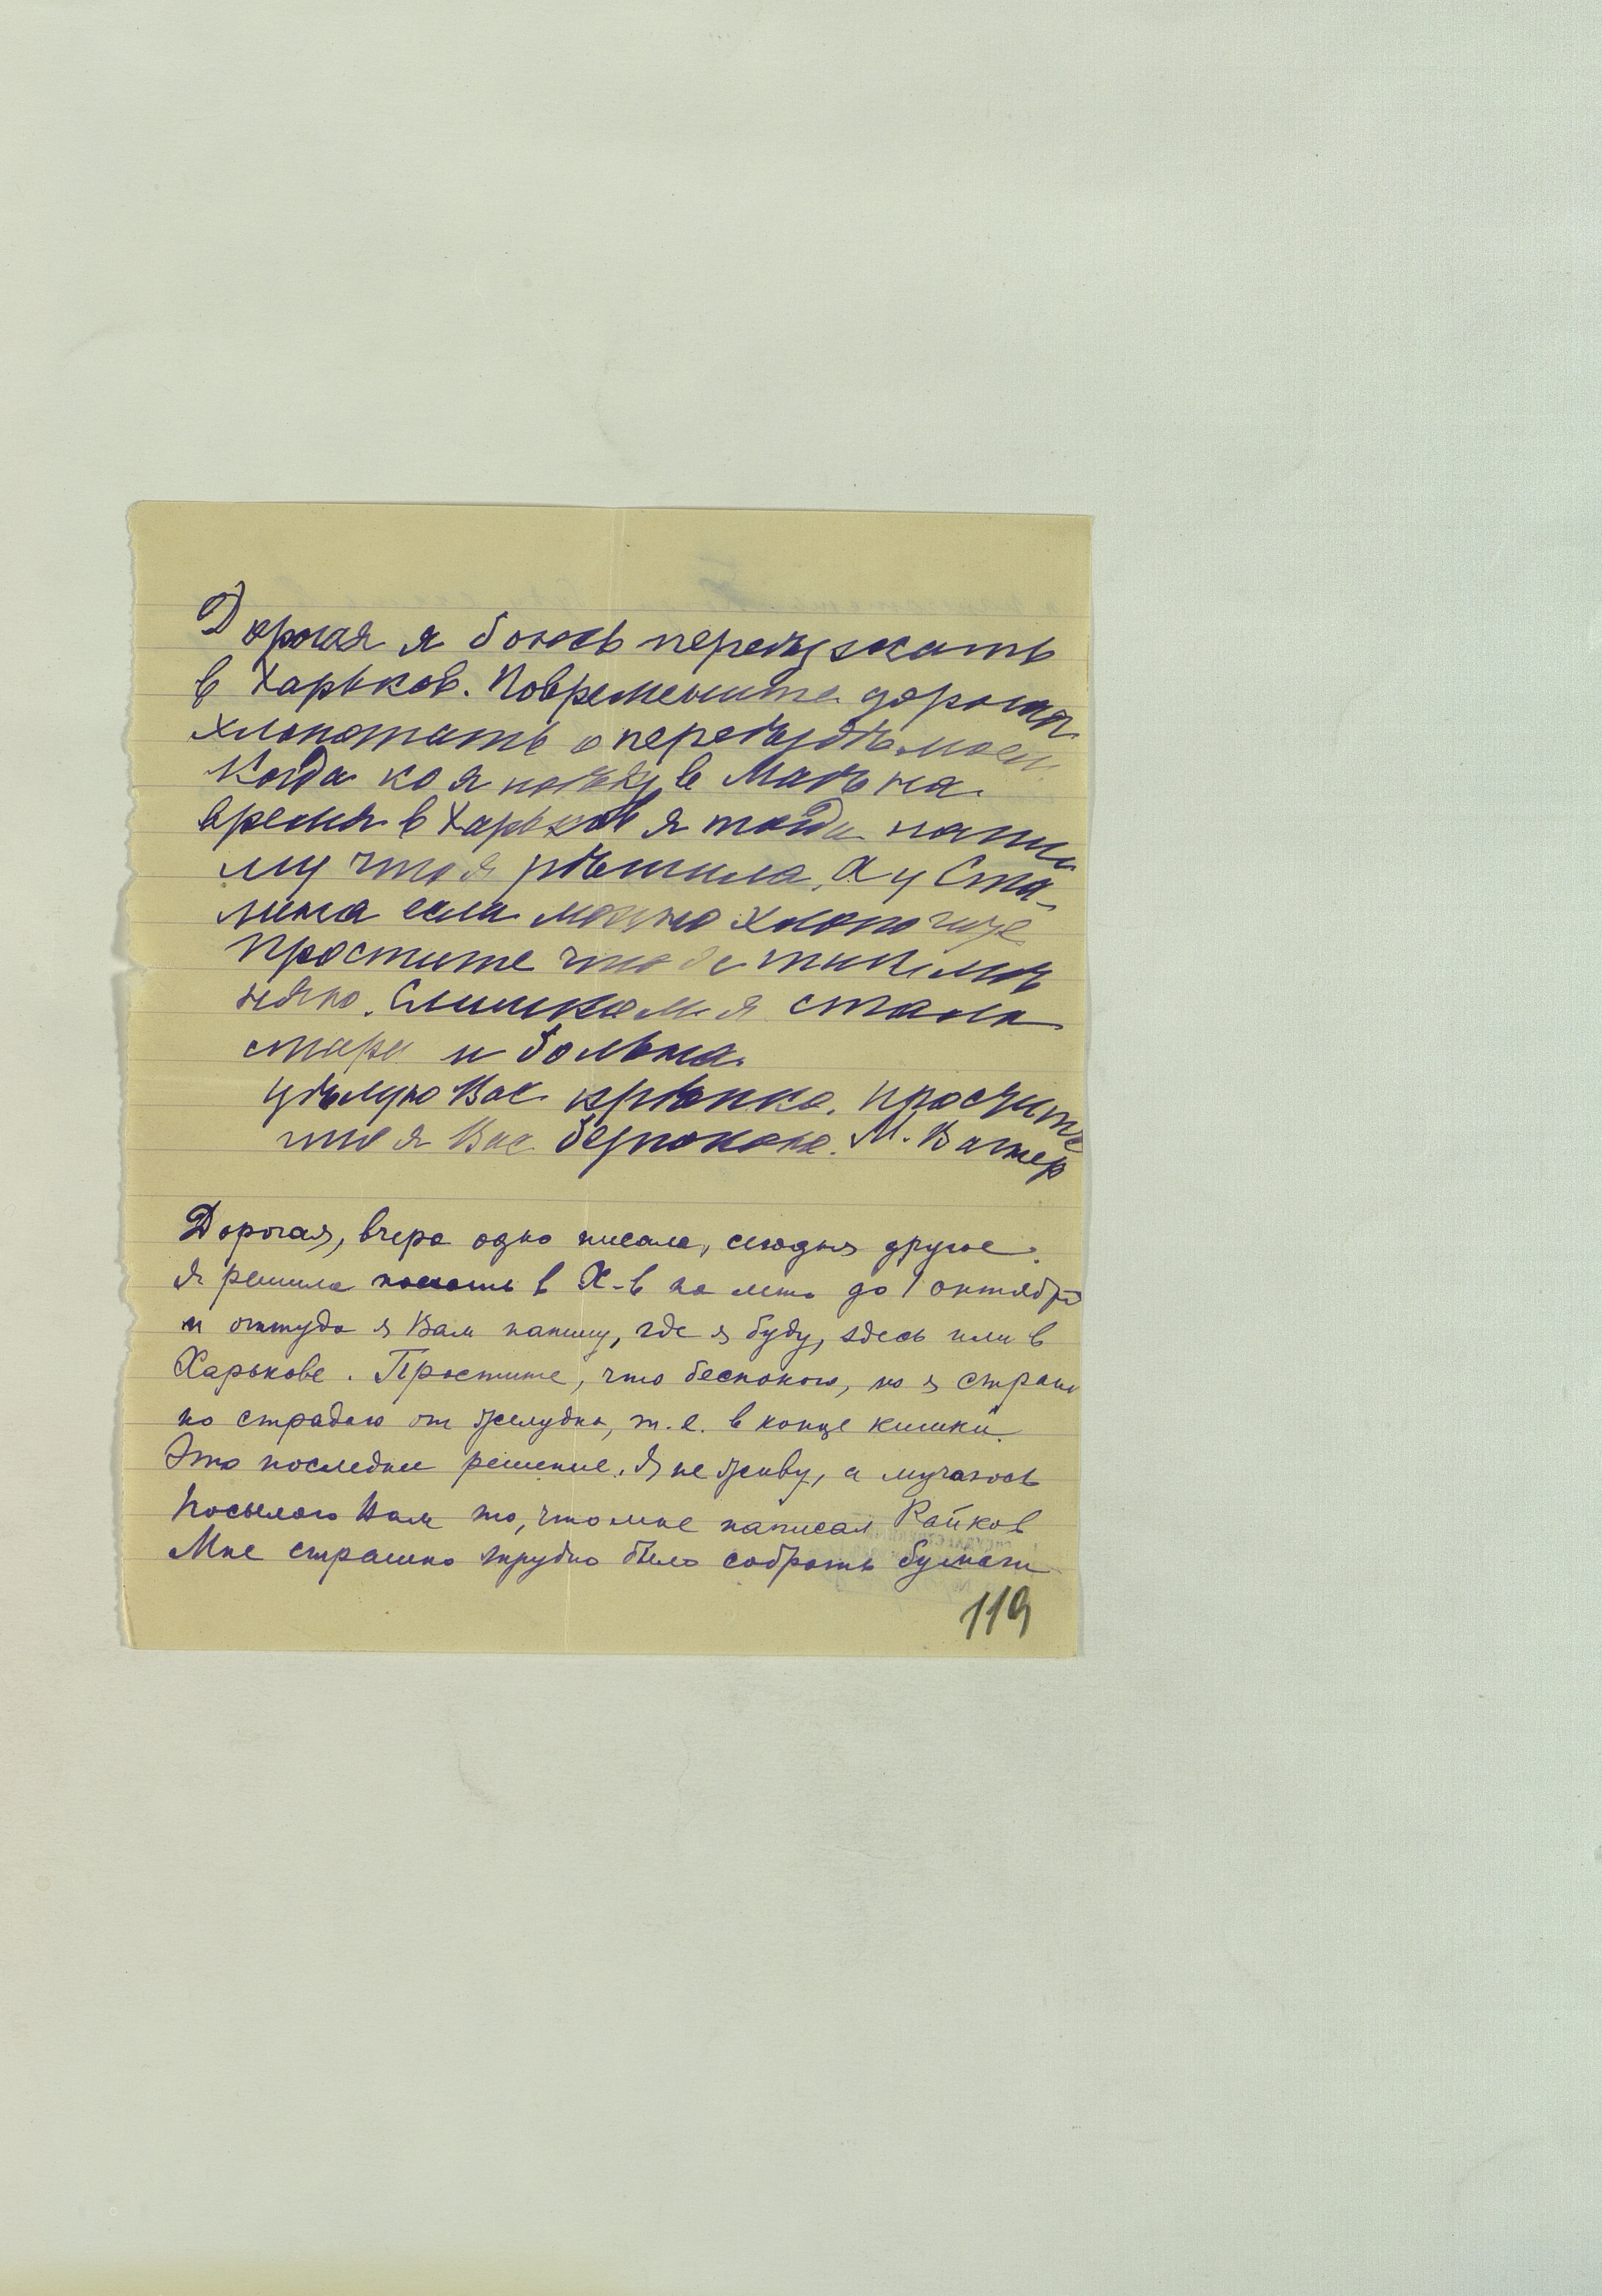 Дорогая я боюсь переѣзжать
в Харьков. Повремените дорогая
хлопотать о переѣздѣ моем.
Когда ко я поѣду в Маѣ на
время в Харьков я тогда напи
шу что я рѣшила. А у Ста-
лина если можно хлопочите
Простите что
Слишком я стала
стара и больна.
Цѣлую Вас крѣпко. Простите
что я Вас безпокою. М. Вагнер
Дорогая, вчера одно писала, сегодня другое.
Я решила поехать в Х-в на лето до 1 октября
и оттуда я Вам напишу, где я буду, здесь или в
Харькове. Простите, что беспокою, но я страш
но страдаю от желудка, т.е. в конце кишки.
Это последнее решение. Я не живу, а мучаюсь
Посылаю Вам то, что мне написал Райков
Мне страшно трудно было собрать бумаги
119